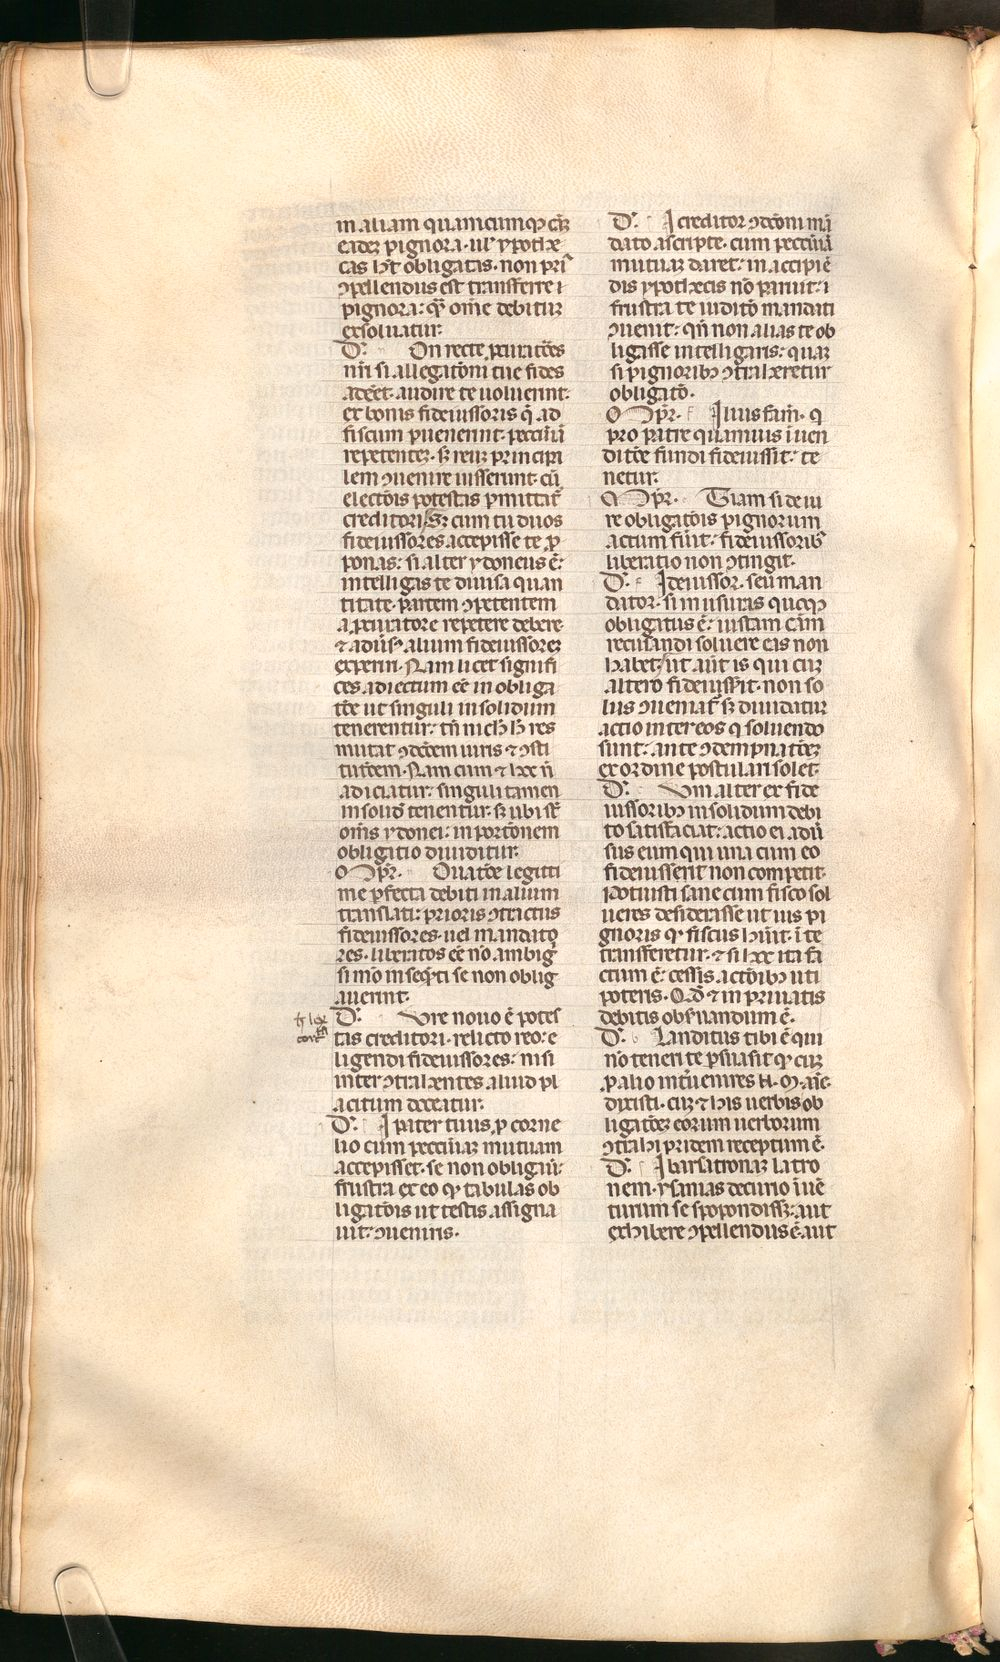 in aliam quamcunqꝫ cāꝫ
eadeꝫ pignora · ul' ypothe
cas hr̄t obligatas · non prī
ꝯpellendus est transferre i
pignora : qͣꝫ om̄e debituꝫ
exsoluatur ·
D'. On recte ꝓcuratōes
nr̄i si allegatōni tue fides
adeēt · audire te uoluerint ·
ex bonis fideiussoris q̄ ad
fiscum ꝑuenerint · pecc̄iā
repetenteꝫ · sꝫ reuꝫ principa
lem ꝯuenire iusserunt · cū
electōis potestas ꝑmittat᷑
creditori · Sꝫ cum tu duos
fideiussores accepisse te ꝓ
ponas : si alter ydoneus ē :
intelligas te diuisa quan
titate · partem ꝯpetentem
a ꝓcuratore repetere debere ·
⁊ adūsꝰ alium fideiussoreꝫ
experiri · Nam licet signifi
ces adiectum eē in obliga
tōe ut singuli insolidum
tenerentur : tn̄ nichil h̄ res
mutat ꝯdicōem iuris ⁊ ꝯsti
tutōem · Nam cum ⁊ hec n̄
adiciatur : singuli tamen
insolid̄ tenentur · sꝫ ubi st̄
om̄s ydonei : in portōnem
obligatio diuiditur ·
O p̄r. Ouatōe legitti
me ꝑfecta debiti in alium
translati : prioris ꝯtractus
fideiussores · uel mandato
res · liberatos eē nō ambigᷓ
si mō in seqn̄ti se non oblig
auerint ·
D'. Vre nouo ē potes
tas creditori · relicto reo : e
ligendi fideiussores : nisi
inter ꝯtrahentes aliud pl
acitum doceatur ·
D'. I pater tuus ꝓ corne
lio cum pecc̄iaꝫ mutuam
accepisset · se non obligaū :
frustra ex eo qꝫ tabulas ob
ligatōis ut testis assigna
uit : ꝯueniris ·
D'. I creditor ꝯdicōni mā
dato ascripte · cum pecc̄iā
mutuaꝫ daret : in accipiē
dis ypothecis nō paruit : i
frustra te iudito mandati
ꝯuenit : qn̄ non alias te ob
ligasse intelligaris : quaꝫ
si pignoribꝫ ꝯtraheretur
obligatō ·
O p̄r. Iliusfam̄ · q
pro patre quamuis i uen
ditōe fundi fideiussit : te
netur ·
O p̄r. Tiam si de iu
re obligatōis pignorum
actum fuit : fideiussoribꝰ
liberatio non ꝯtingit ·
D'. Ideiussor · seu man
dator · si in usuras quoqꝫ
obligatus ē : iustam cām
recusandi soluere eas non
habet · ut aut̄ is qui cuꝫ
altero fideiussit · non so
lus ꝯueniat᷑ sꝫ diuidatur
actio inter eos q soluendo
sunt : ante ꝯdempnatōeꝫ
ex ordine postulari solet ·
D'. Vm alter ex fide
iussoribꝫ insolidum debi
to satisfaciat : actio ei adū
sus eum qui una cum eo
fideiusserit non competit ·
Potuisti sane cum fisco sol
ueres desiderasse ut ius pi
gnoris qꝫ fiscus h̄uit · i te
transferetur · ⁊ si hec ita fa
ctum ē : cessis actōibꝫ uti
poteris · Qd̄ ⁊ in priuatis
debitis obẜuandum ē ·
D'. Landitus tibi ē qui
nō teneri te ꝑsuasit qꝫ cuꝫ
ꝓ alio int̄uenires
dixisti · cuꝫ ⁊ his uerbis ob
ligatōeꝫ eorum uerborum
ꝯtrahi pridem receptum ē ·
D'. I barsatronaꝫ latro
nem · ysanias decurio i uē
turum se spopondisseꝫ : aut
exhibere ꝯpellendus ē · aut